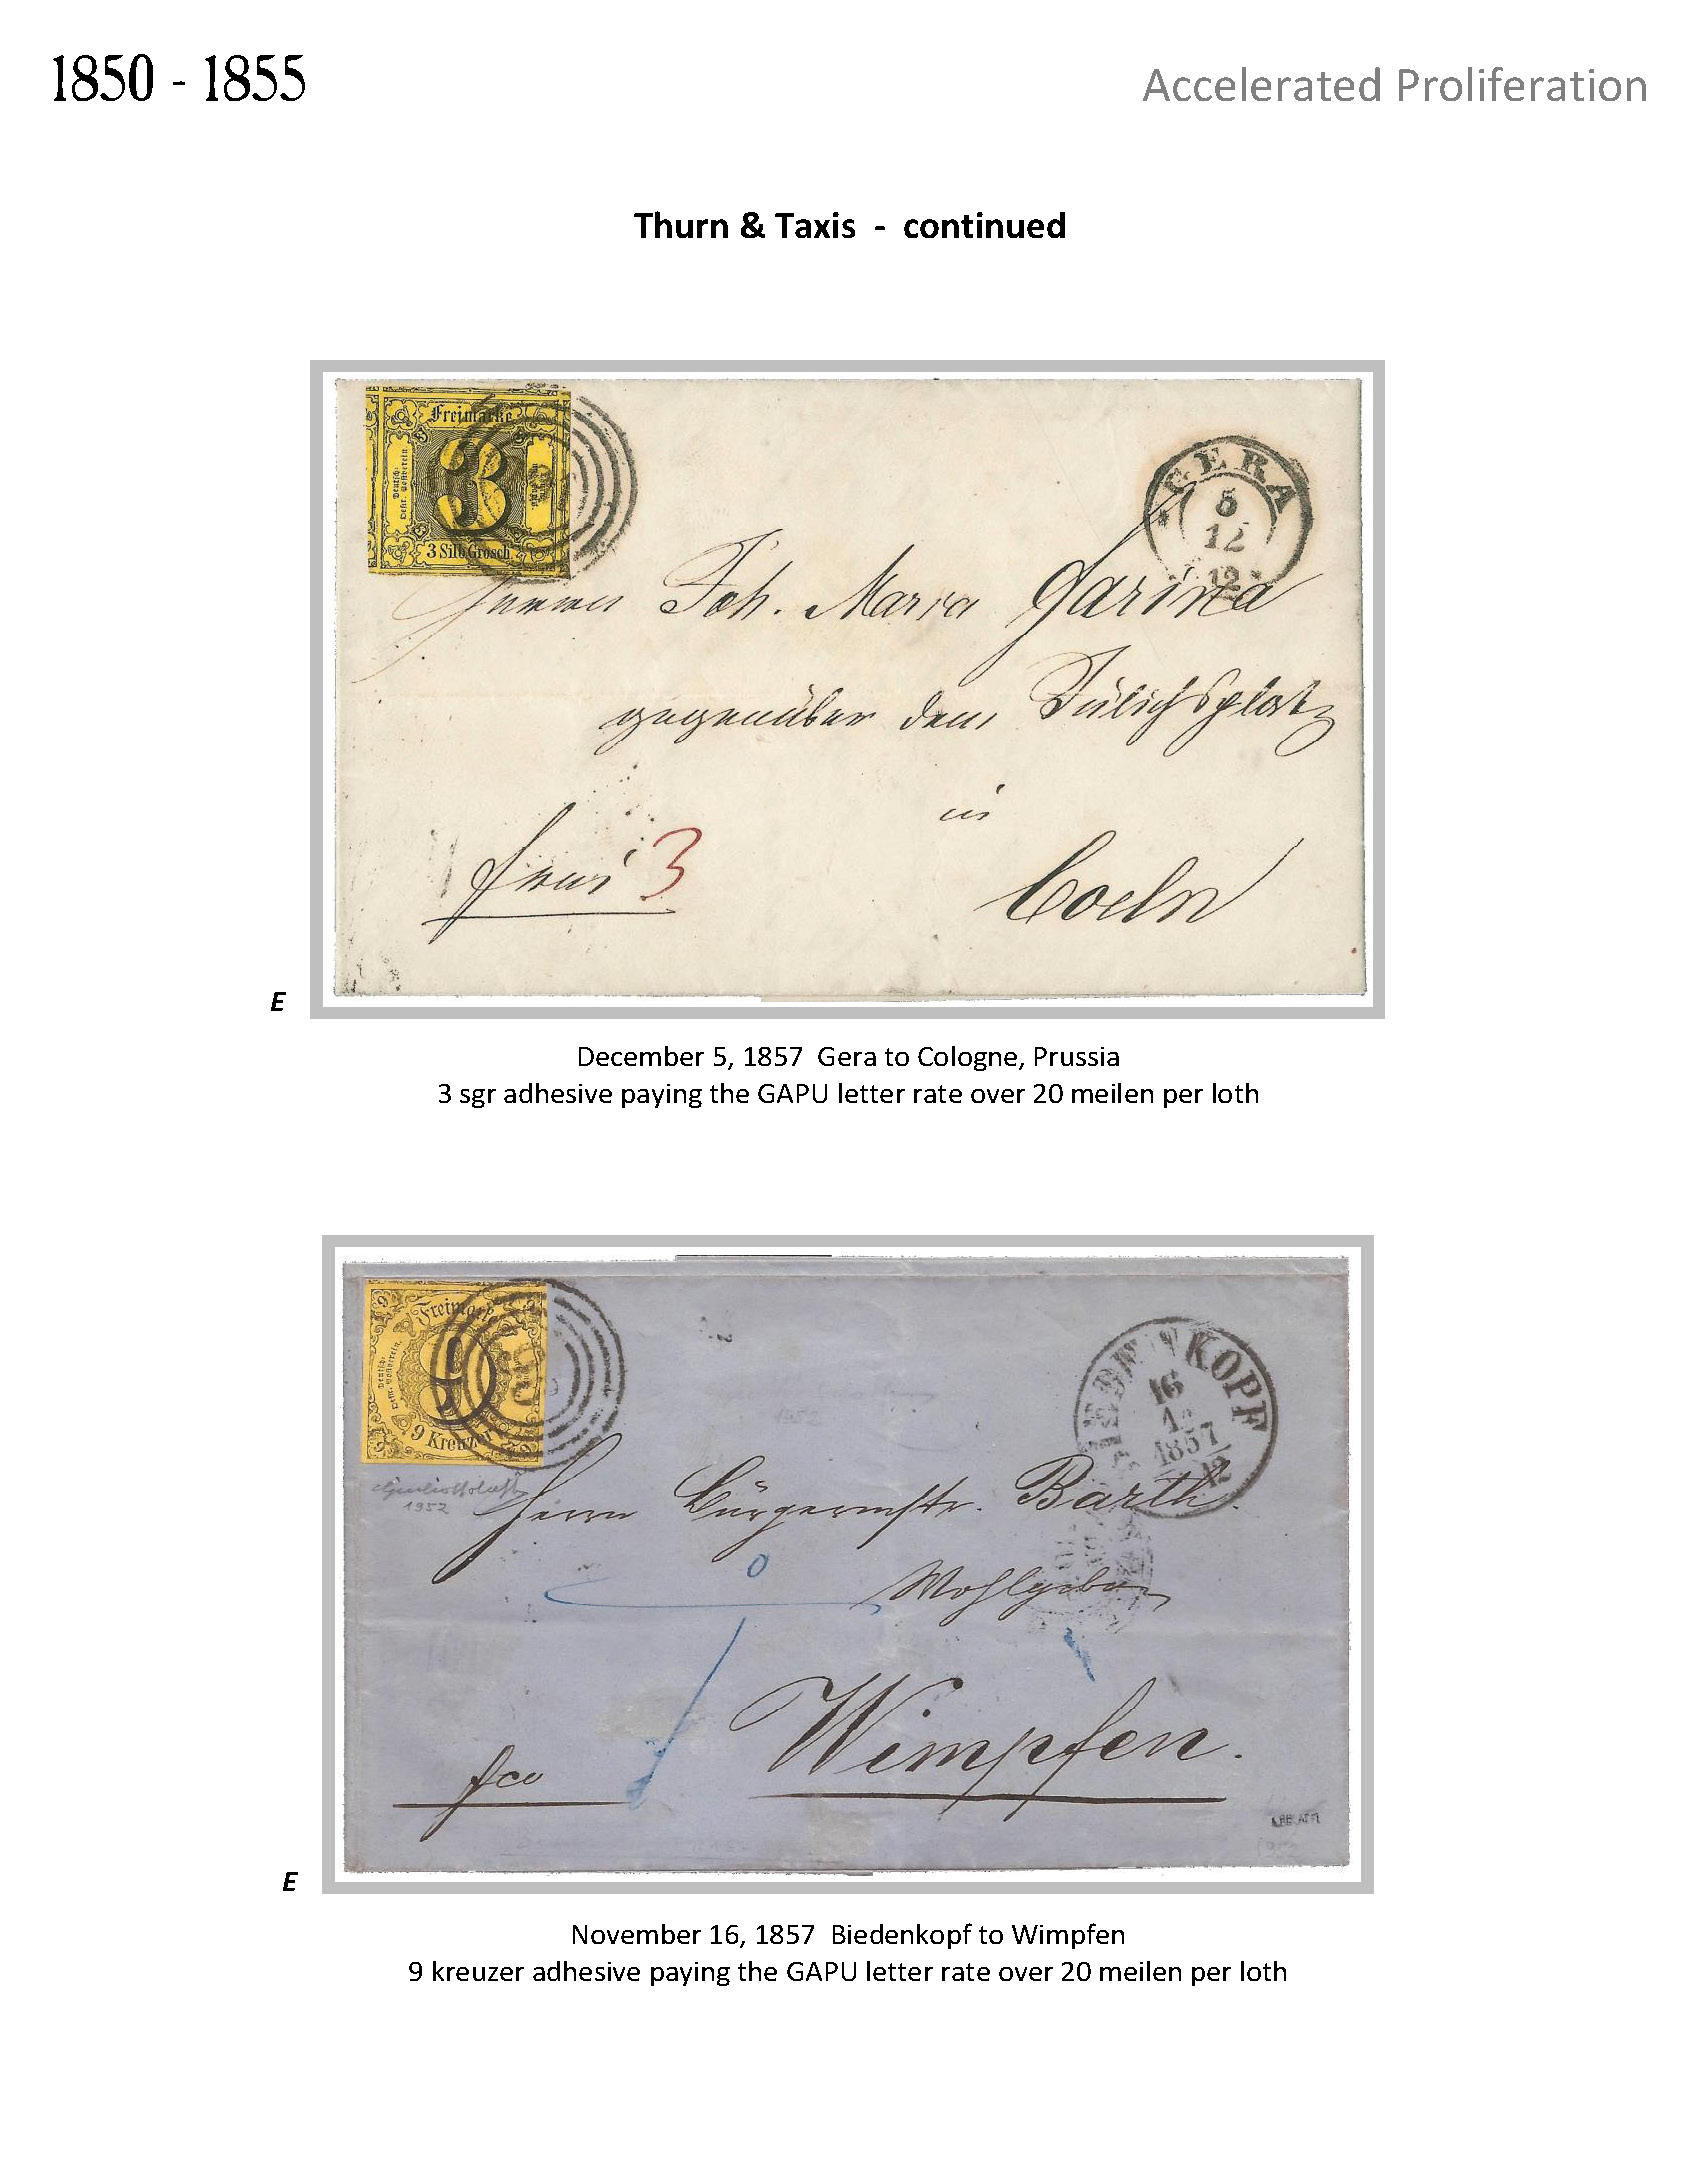 1850 - 1855
Accelerated Proliferation
Thurn & Taxis - continued
Freimarke
3
3 Silb. Grosch.
GERA
5
12
12
Herrn Joh. Maria Farina
gegenüber dem Jülichsplatz
in
franco 3
Coeln
E
December 5, 1857 Gera to Cologne, Prussia
3 sgr adhesive paying the GAPU letter rate over 20 meilen per loth
Freimarke
9
9 Kreuzer
BIEDENKOPF
16
1857
12
1952
Herrn Bürgermstr. Barth.
Wohlgeboren
Wimpfen.
fco
E
November 16, 1857 Biedenkopf to Wimpfen
9 kreuzer adhesive paying the GAPU letter rate over 20 meilen per loth